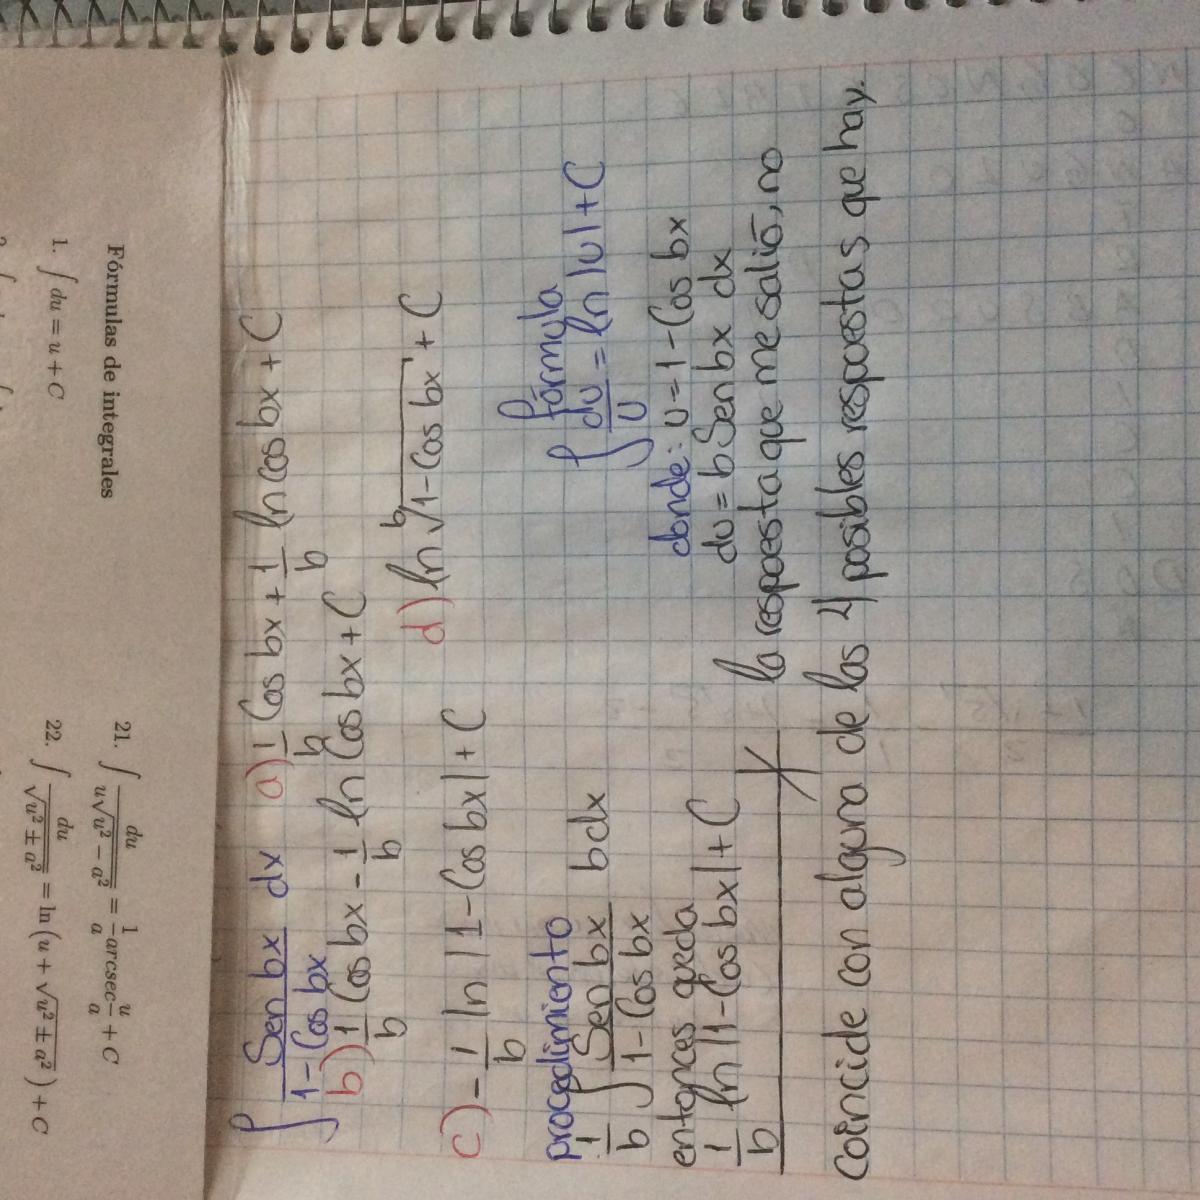 Fórmulas de integrales
1. ∫ du = u + C
21. ∫ du / (u√(u² − a²)) = 1/a arcsec u/a + C
22. ∫ du / √(u² ± a²) = ln (u + √(u² ± a²)) + C
∫ Sen bx / (1 - Cos bx) dx a) 1/b Cos bx + 1/b ln Cos bx + C
b) 1/b Cos bx - 1/b ln Cos bx + C
c) - 1/b ln |1 - Cos bx| + C d) ln ᵇ√(1 - Cos bx) + C
procedimiento
1/b ∫ Sen bx / (1 - Cos bx) bdx
entonces queda
1/b ln |1 - Cos bx| + C
fórmula
∫ du/u = ln |u| + C
donde: u = 1 - Cos bx
du = b Sen bx dx
la respuesta que me salió, no
Coincide con alguna de las 4 posibles respuestas que hay.